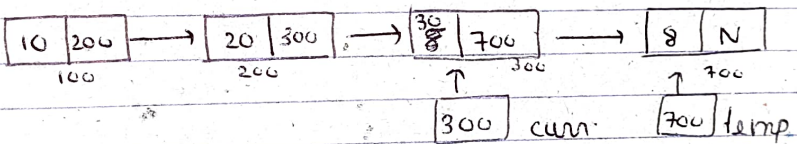 30
10 200 20 300 8 700 8 N
100 200 300 700
300 curr. 700 temp